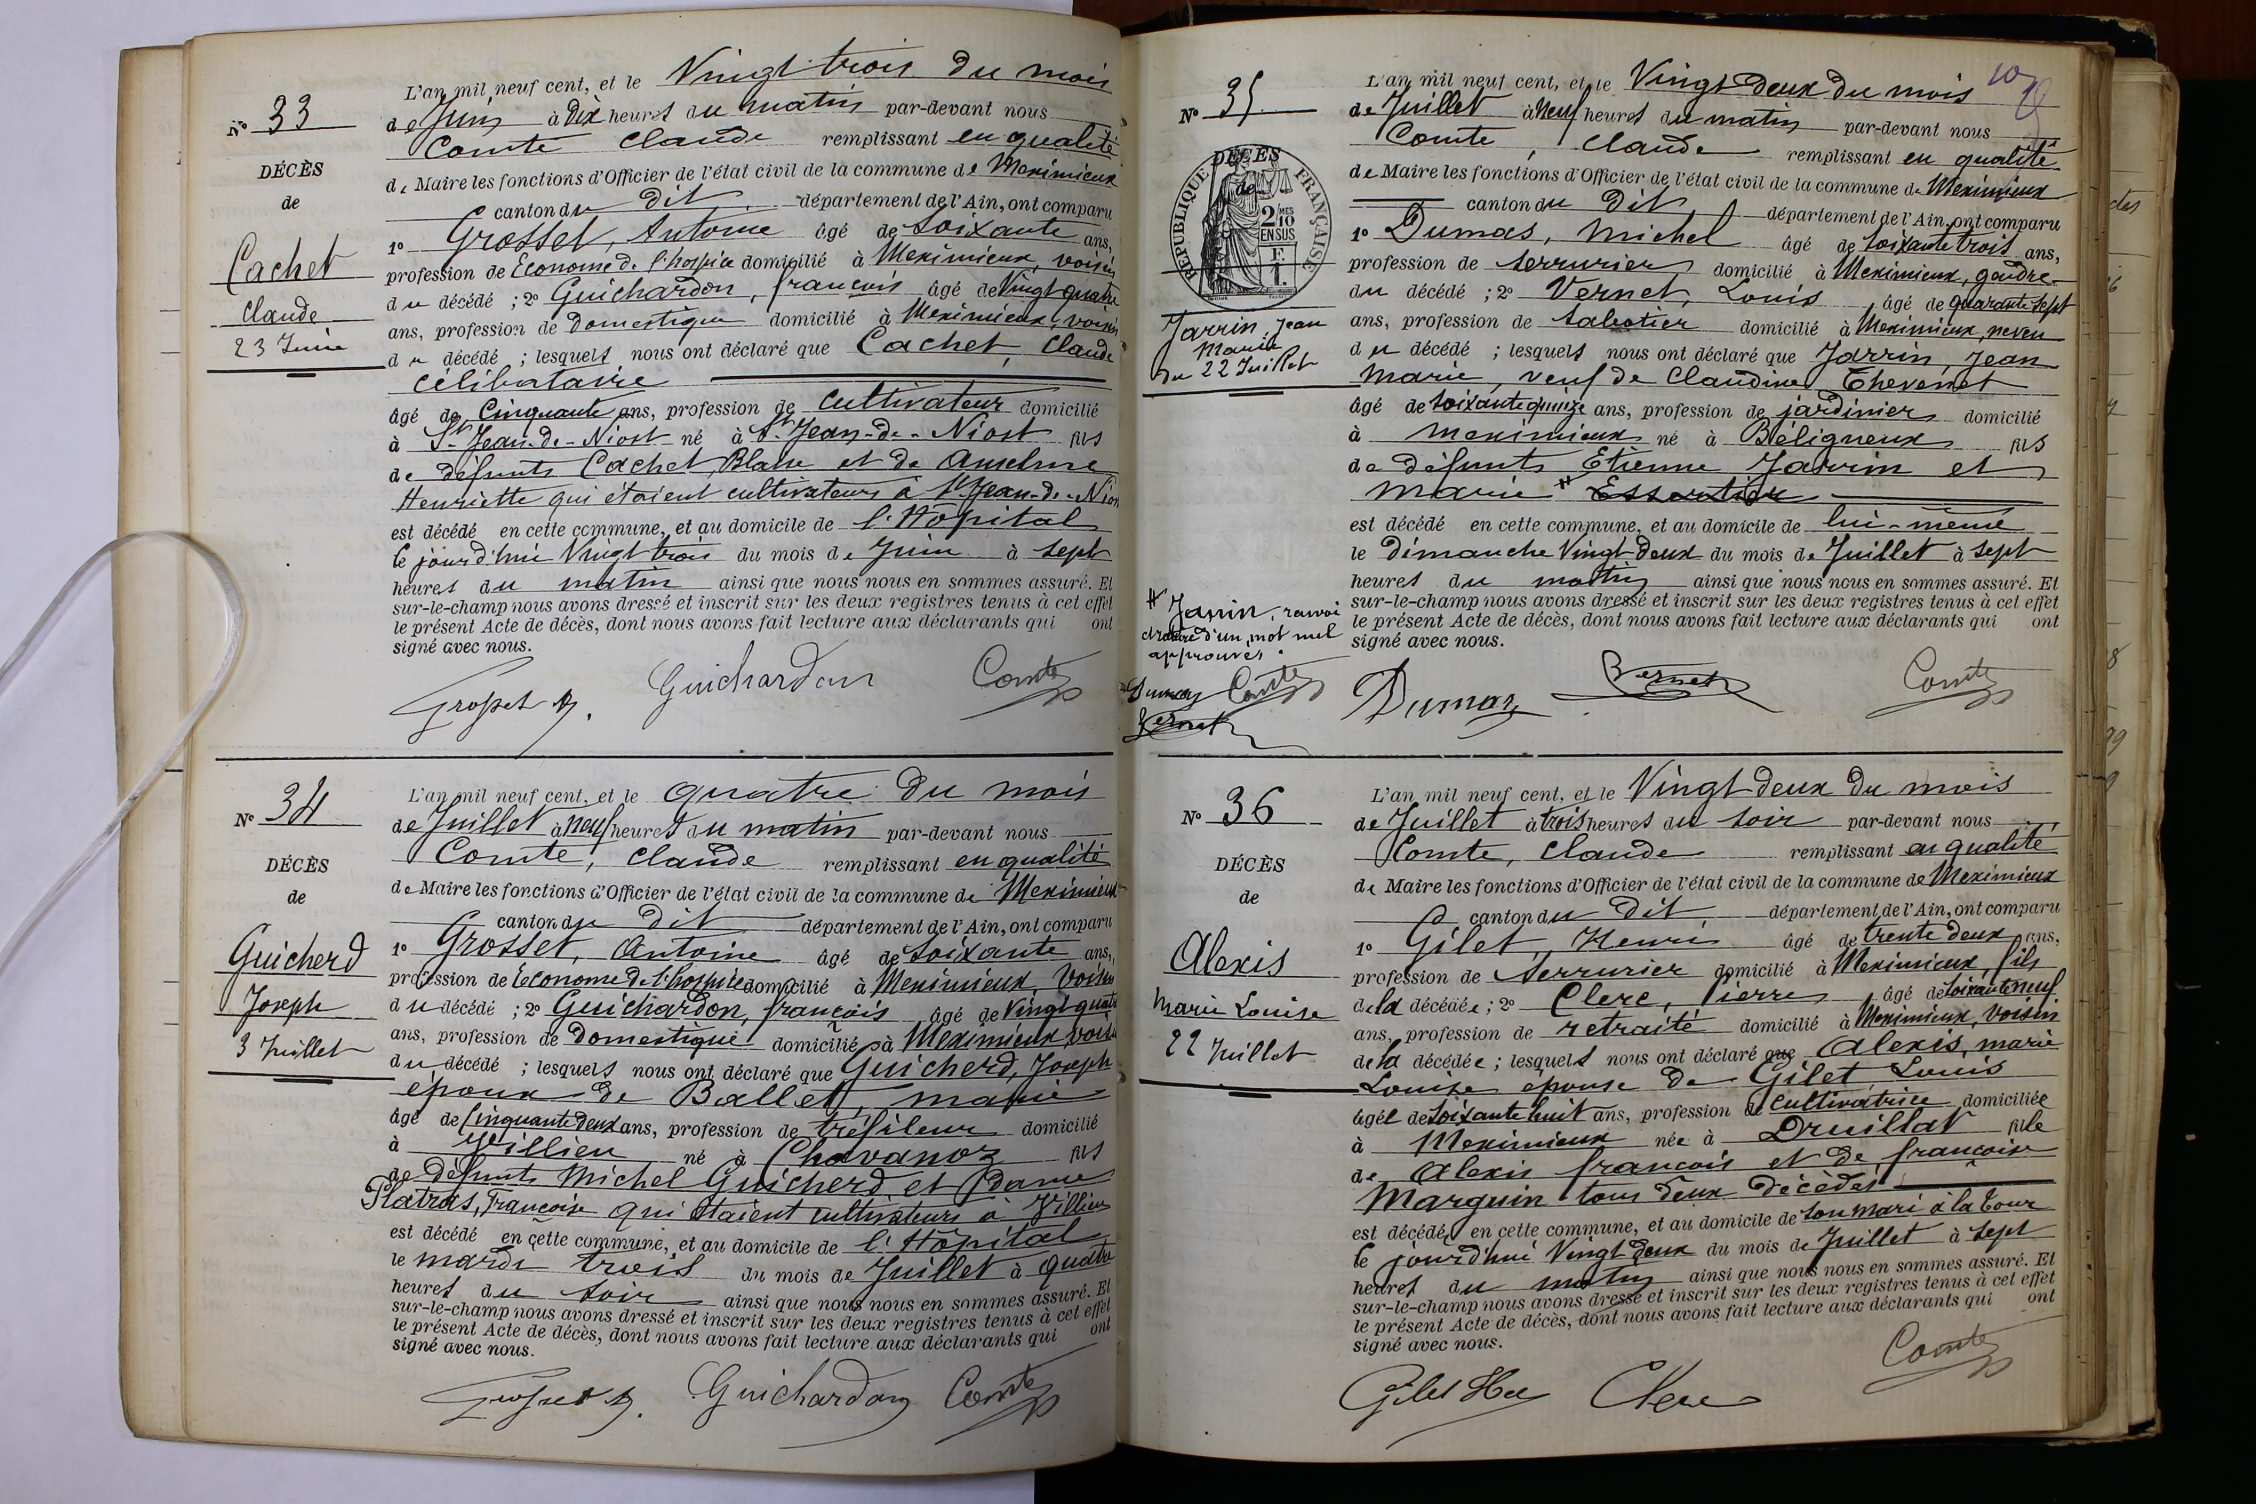 L'an mil neuf cent, et le Vingt trois du mois
N° 33
de Juin à Dix heures du matin par-devant nous
Comte Claude remplissant en qualité
DÉCÈS
de Maire les fonctions d'Officier de l'état civil de la commune de Meximieux
de
canton du Dit département de l'Ain, ont comparu
1° Grosset, Antoine âgé de soixante ans,
Cachet
profession de Econome de l'hospice domicilié à Meximieux, voisin
du décédé ; 2° Guichardon, françois âgé de Vingt quatre
Claude
ans, profession de Domestique domicilié à Meximieux, voisin
23 Juin
du décédé ; lesquels nous ont déclaré que Cachet, Claude
célibataire
âgé de Cinquante ans, profession de cultivateur domicilié
à St Jean-de-Niost né à St Jean-de-Niost fils
de défunts Cachet Blaise et de Anselme
Henriette qui étaient cultivateurs à St Jean-de-Niost
est décédé en cette commune, et au domicile de l'Hôpital
le jourd'hui Vingt trois du mois de Juin à sept
heures du matin ainsi que nous nous en sommes assuré. Et
sur-le-champ nous avons dressé et inscrit sur les deux registres tenus à cet effet
le présent Acte de décès, dont nous avons fait lecture aux déclarants qui ont
signé avec nous.
Grosset A. Guichardon Comte
L'an mil neuf cent, et le quatre du mois
N° 34
de Juillet à neuf heures du matin par-devant nous
Comte, Claude remplissant en qualité
DÉCÈS
de Maire les fonctions d'Officier de l'état civil de la commune de Meximieux
de
canton du Dit département de l'Ain, ont comparu
1° Grosset, Antoine âgé de soixante ans,
Guicherd
profession de Econome de l'hospice domicilié à Meximieux, voisin
Joseph
du décédé ; 2° Guichardon, françois âgé de Vingt quatre
ans, profession de Domestique domicilié à Meximieux voisin
3 Juillet
du décédé ; lesquels nous ont déclaré que Guicherd, Joseph
époux de Ballet, marie
âgé de Cinquante deux ans, profession de tréfileur domicilié
à Villieu né à Chavanoz fils
de défunts Michel Guicherd et Dame
Platras, Françoise qui étaient cultivateurs à Villieu
est décédé en cette commune, et au domicile de l'Hôpital
le mardi trois du mois de Juillet à quatre
heures du soir ainsi que nous nous en sommes assuré. Et
sur-le-champ nous avons dressé et inscrit sur les deux registres tenus à cet effet
le présent Acte de décès, dont nous avons fait lecture aux déclarants qui ont
signé avec nous.
Grosset A. Guichardon Comte
10
L'an mil neuf cent, et le Vingt deux du mois
N° 35
de Juillet à Neuf heures du matin par-devant nous
Comte, Claude remplissant en qualité
DÉCÈS
de
RÉPUBLIQUE FRANÇAISE
2/10 MES
EN SUS
F.
1.
de Maire les fonctions d'Officier de l'état civil de la commune de Meximieux
canton du Dit département de l'Ain, ont comparu
1° Dumas, Michel âgé de soixante trois ans,
profession de serrurier domicilié à Meximieux, gendre
du décédé ; 2° Vernet, Louis, âgé de quarante sept
Jarrin, Jean
Marie
du 22 Juillet
ans, profession de sabotier domicilié à Meximieux, neveu
du décédé ; lesquels nous ont déclaré que Jarrin, Jean
Marie, veuf de Claudine Thevenet
âgé de soixante quinze ans, profession de jardinier domicilié
à Meximieux né à Béligneux fils
de défunts Etienne Jarrin et
Marie # Essertier
est décédé en cette commune, et au domicile de lui-même
le dimanche Vingt deux du mois de Juillet à sept
heures du matin ainsi que nous nous en sommes assuré. Et
sur-le-champ nous avons dressé et inscrit sur les deux registres tenus à cet effet
le présent Acte de décès, dont nous avons fait lecture aux déclarants qui ont
signé avec nous.
# Janin, renvoi
et rature d'un mot nul
approuvés.
Dumas Comte
Vernet
Dumas Vernet Comte
L'an mil neuf cent, et le Vingt deux du mois
N° 36
de Juillet à trois heures du soir par-devant nous
Comte, Claude remplissant en qualité
DÉCÈS
de Maire les fonctions d'Officier de l'état civil de la commune de Meximieux
de
canton du Dit département de l'Ain, ont comparu
1° Gilet, Henri âgé de trente deux ans,
Alexis
profession de serrurier domicilié à Meximieux, fils
Marie Louise
de la décédée ; 2° Clerc, Pierre, âgé de soixante neuf
ans, profession de retraité domicilié à Meximieux, voisin
22 Juillet
de la décédée ; lesquels nous ont déclaré que Alexis, marie
Louise épouse de Gilet Louis
âgée de soixante huit ans, profession de cultivatrice domiciliée
à Meximieux née à Druillat fille
de Alexis françois et de françoise
Marguin tous deux décédés
est décédée en cette commune, et au domicile de son mari à la Cour
le jourd'hui Vingt deux du mois de Juillet à sept
heures du matin ainsi que nous nous en sommes assuré. Et
sur-le-champ nous avons dressé et inscrit sur les deux registres tenus à cet effet
le présent Acte de décès, dont nous avons fait lecture aux déclarants qui ont
signé avec nous.
Gilet Hri Clerc Comte